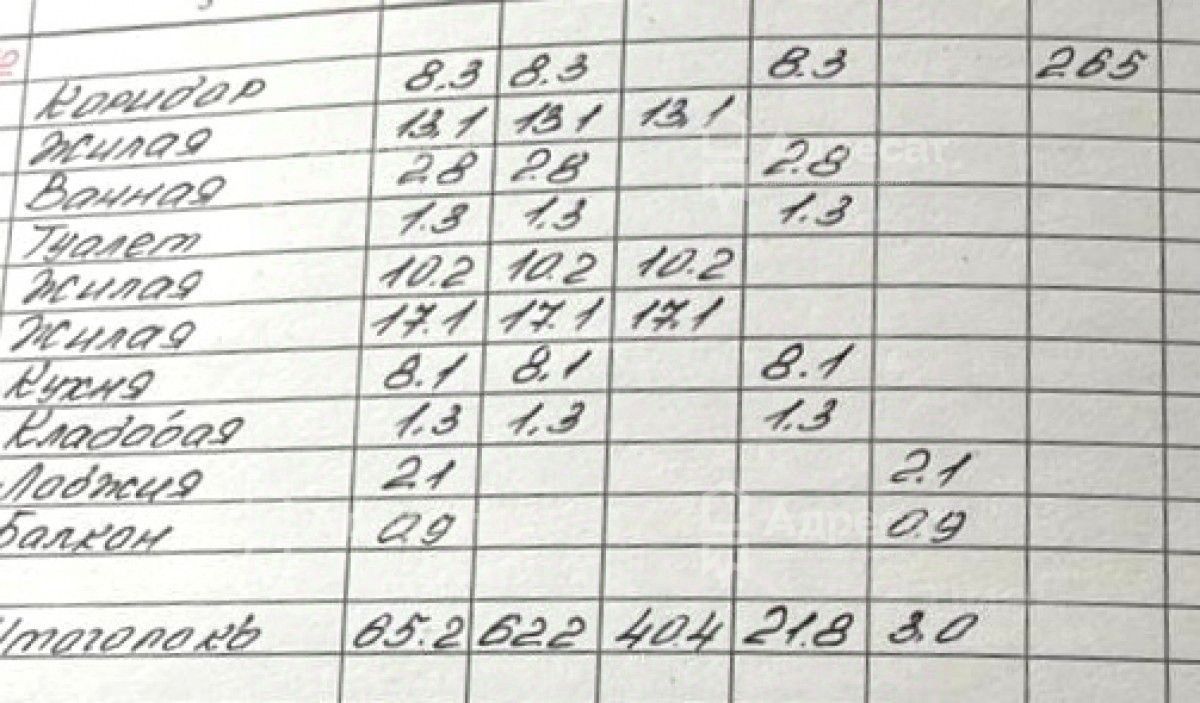 Коридор 8.3 8.3 8.3 265
Жилая 13.1 13.1 13.1
Ванная 2.8 2.8 2.8
Туалет 1.3 1.3 1.3
Жилая 10.2 10.2 10.2
Жилая 17.1 17.1 17.1
Кухня 8.1 8.1 8.1
Кладовая 1.3 1.3 1.3
Лоджия 2.1 2.1
Балкон 0.9 0.9
Итого по кв 65.2 62.2 40.4 21.8 3.0
Адресат
Адресат